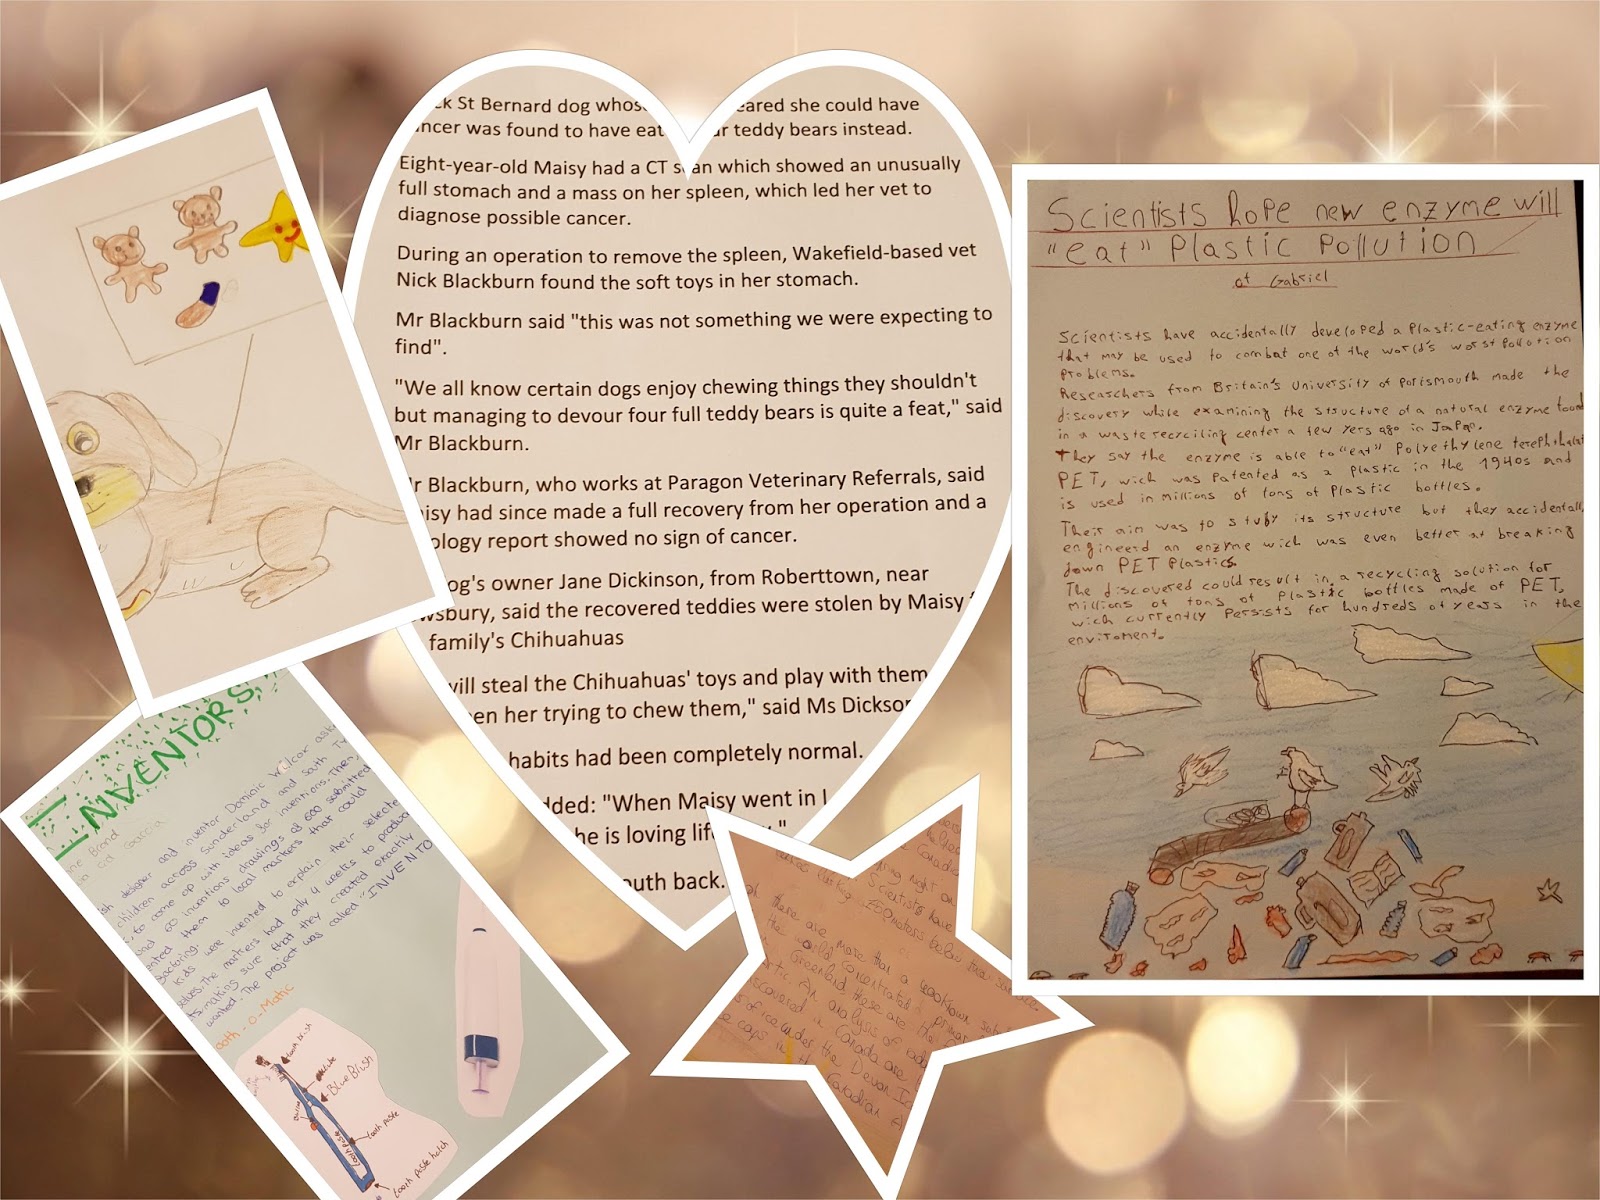 St Bernard dog whos eared she could have
ncer was found to have eat ur teddy bears instead.
Eight-year-old Maisy had a CT scan which showed an unusually
full stomach and a mass on her spleen, which led her vet to
diagnose possible cancer.
During an operation to remove the spleen, Wakefield-based vet
Nick Blackburn found the soft toys in her stomach.
Mr Blackburn said "this was not something we were expecting to
find".
"We all know certain dogs enjoy chewing things they shouldn't
but managing to devour four full teddy bears is quite a feat," said
Mr Blackburn.
r Blackburn, who works at Paragon Veterinary Referrals, said
isy had since made a full recovery from her operation and a
ology report showed no sign of cancer.
og's owner Jane Dickinson, from Roberttown, near
wsbury, said the recovered teddies were stolen by Maisy
family's Chihuahuas
will steal the Chihuahuas' toys and play with them
en her trying to chew them," said Ms Dickson
habits had been completely normal.
dded: "When Maisy went in I
he is loving life
outh back.
Scientists hope new enzyme will
"eat" Plastic Pollution
of Gabriel
Scientists have accidentally developed a Plastic-eating enzyme
that may be used to combat one of the world's worst Pollution
Problems.
Researchers from Britain's University of Portsmouth made the
discovery while examining the structure of a natural enzyme found
in a waste recycling center a few yers ago in Japan.
They say the enzyme is able to "eat" Polyethylene terephthalat
PET, wich was Patented as a Plastic in the 1940s and
is used in millions of tons of Plastic bottles.
Their aim was to study its structure but they accidentall
engineerd an enzyme wich was even better at breaking
down PET Plastics
The discovered could result in a recycling solution for
millions of tons of Plastic bottles made of PET,
wich currently Persists for hundreds of years in the
enviroment.
INVENTORS!
designer and inventor Dominic Wilcox ask
children across Sunderland and South Ty
to come up with ideas for inventions. Then,
60 inventions drawings of 600 submitted
them to local markers that could
kids were invented to explain their selecte
The markers had only 4 weeks to produc
making sure that they created exactily
wanted. The project was called "INVENTO
ooth-O-Matic
Blue Blush
tooth paste
tooth paste hatch
night
Scientists have
200 meters below
there are more than a
the world concentrated
Greenland and these are the
An analysis of
discovered in Canada are
of ice under the Devon Ic
caps in the Canadian A